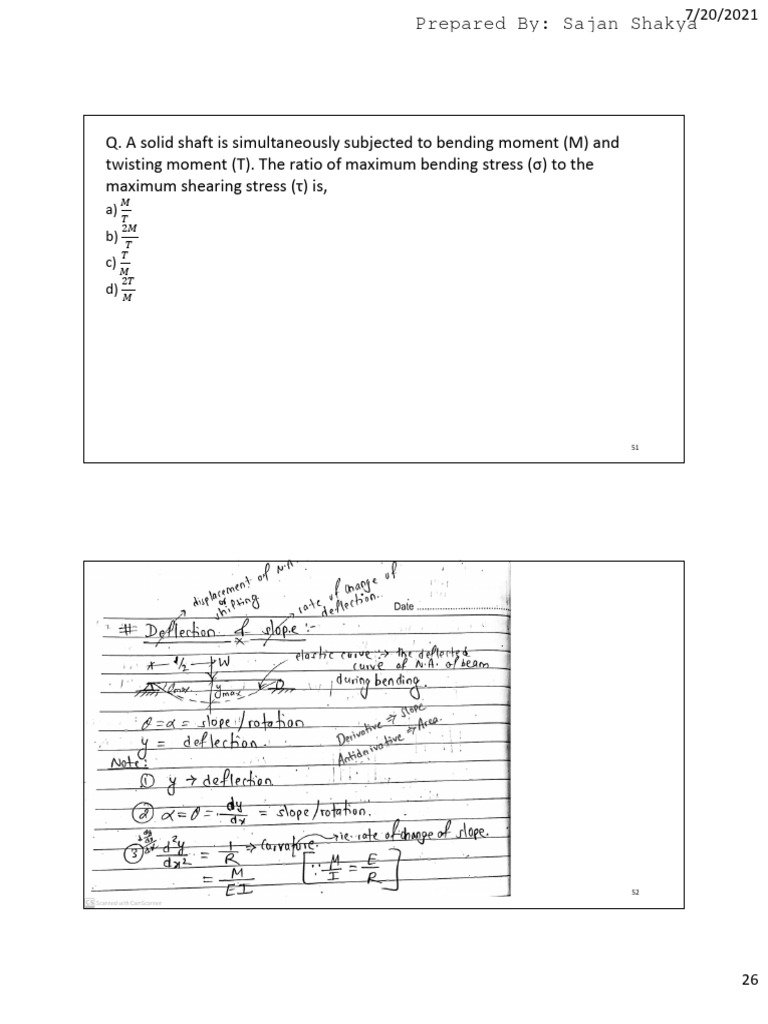 7/20/2021
Prepared By: Sajan Shakya
Q. A solid shaft is simultaneously subjected to bending moment (M) and
twisting moment (T). The ratio of maximum bending stress (σ) to the
maximum shearing stress (τ) is,
a) M/T
b) 2M/T
c) T/M
d) 2T/M
51
displacement of N.A.
or
shifting
rate of change of
deflection..
Date
# Deflection & slope :-
l/2 W
elastic curve :→ the deflected
curve of N.A. of beam
during bending.
θmax ymax
θ = α = slope/rotation
y = deflection.
Derivative ⇒ slope
Antiderivative ⇒ Area.
Note:
① y → deflection
② α = θ = dy/dx = slope/rotation.
③ d²y/dx² = 1/R → Curvature. → ie. rate of change of slope.
= M/EI [∵ M/I = E/R]
CS Scanned with CamScanner
52
26